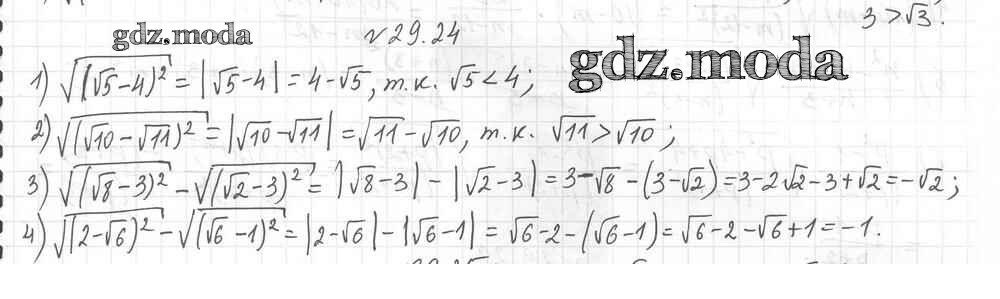 3 > √3.
gdz.moda
√29.24
gdz.moda
1) √(√5-4)² = |√5-4| = 4-√5, т.к. √5 < 4;
2) √(√10-√11)² = |√10-√11| = √11-√10, т.к. √11 > √10;
3) √(√8-3)² - √(√2-3)² = |√8-3| - |√2-3| = 3-√8-(3-√2) = 3-2√2-3+√2 = -√2;
4) √(2-√6)² - √(√6-1)² = |2-√6| - |√6-1| = √6-2-(√6-1) = √6-2-√6+1 = -1.